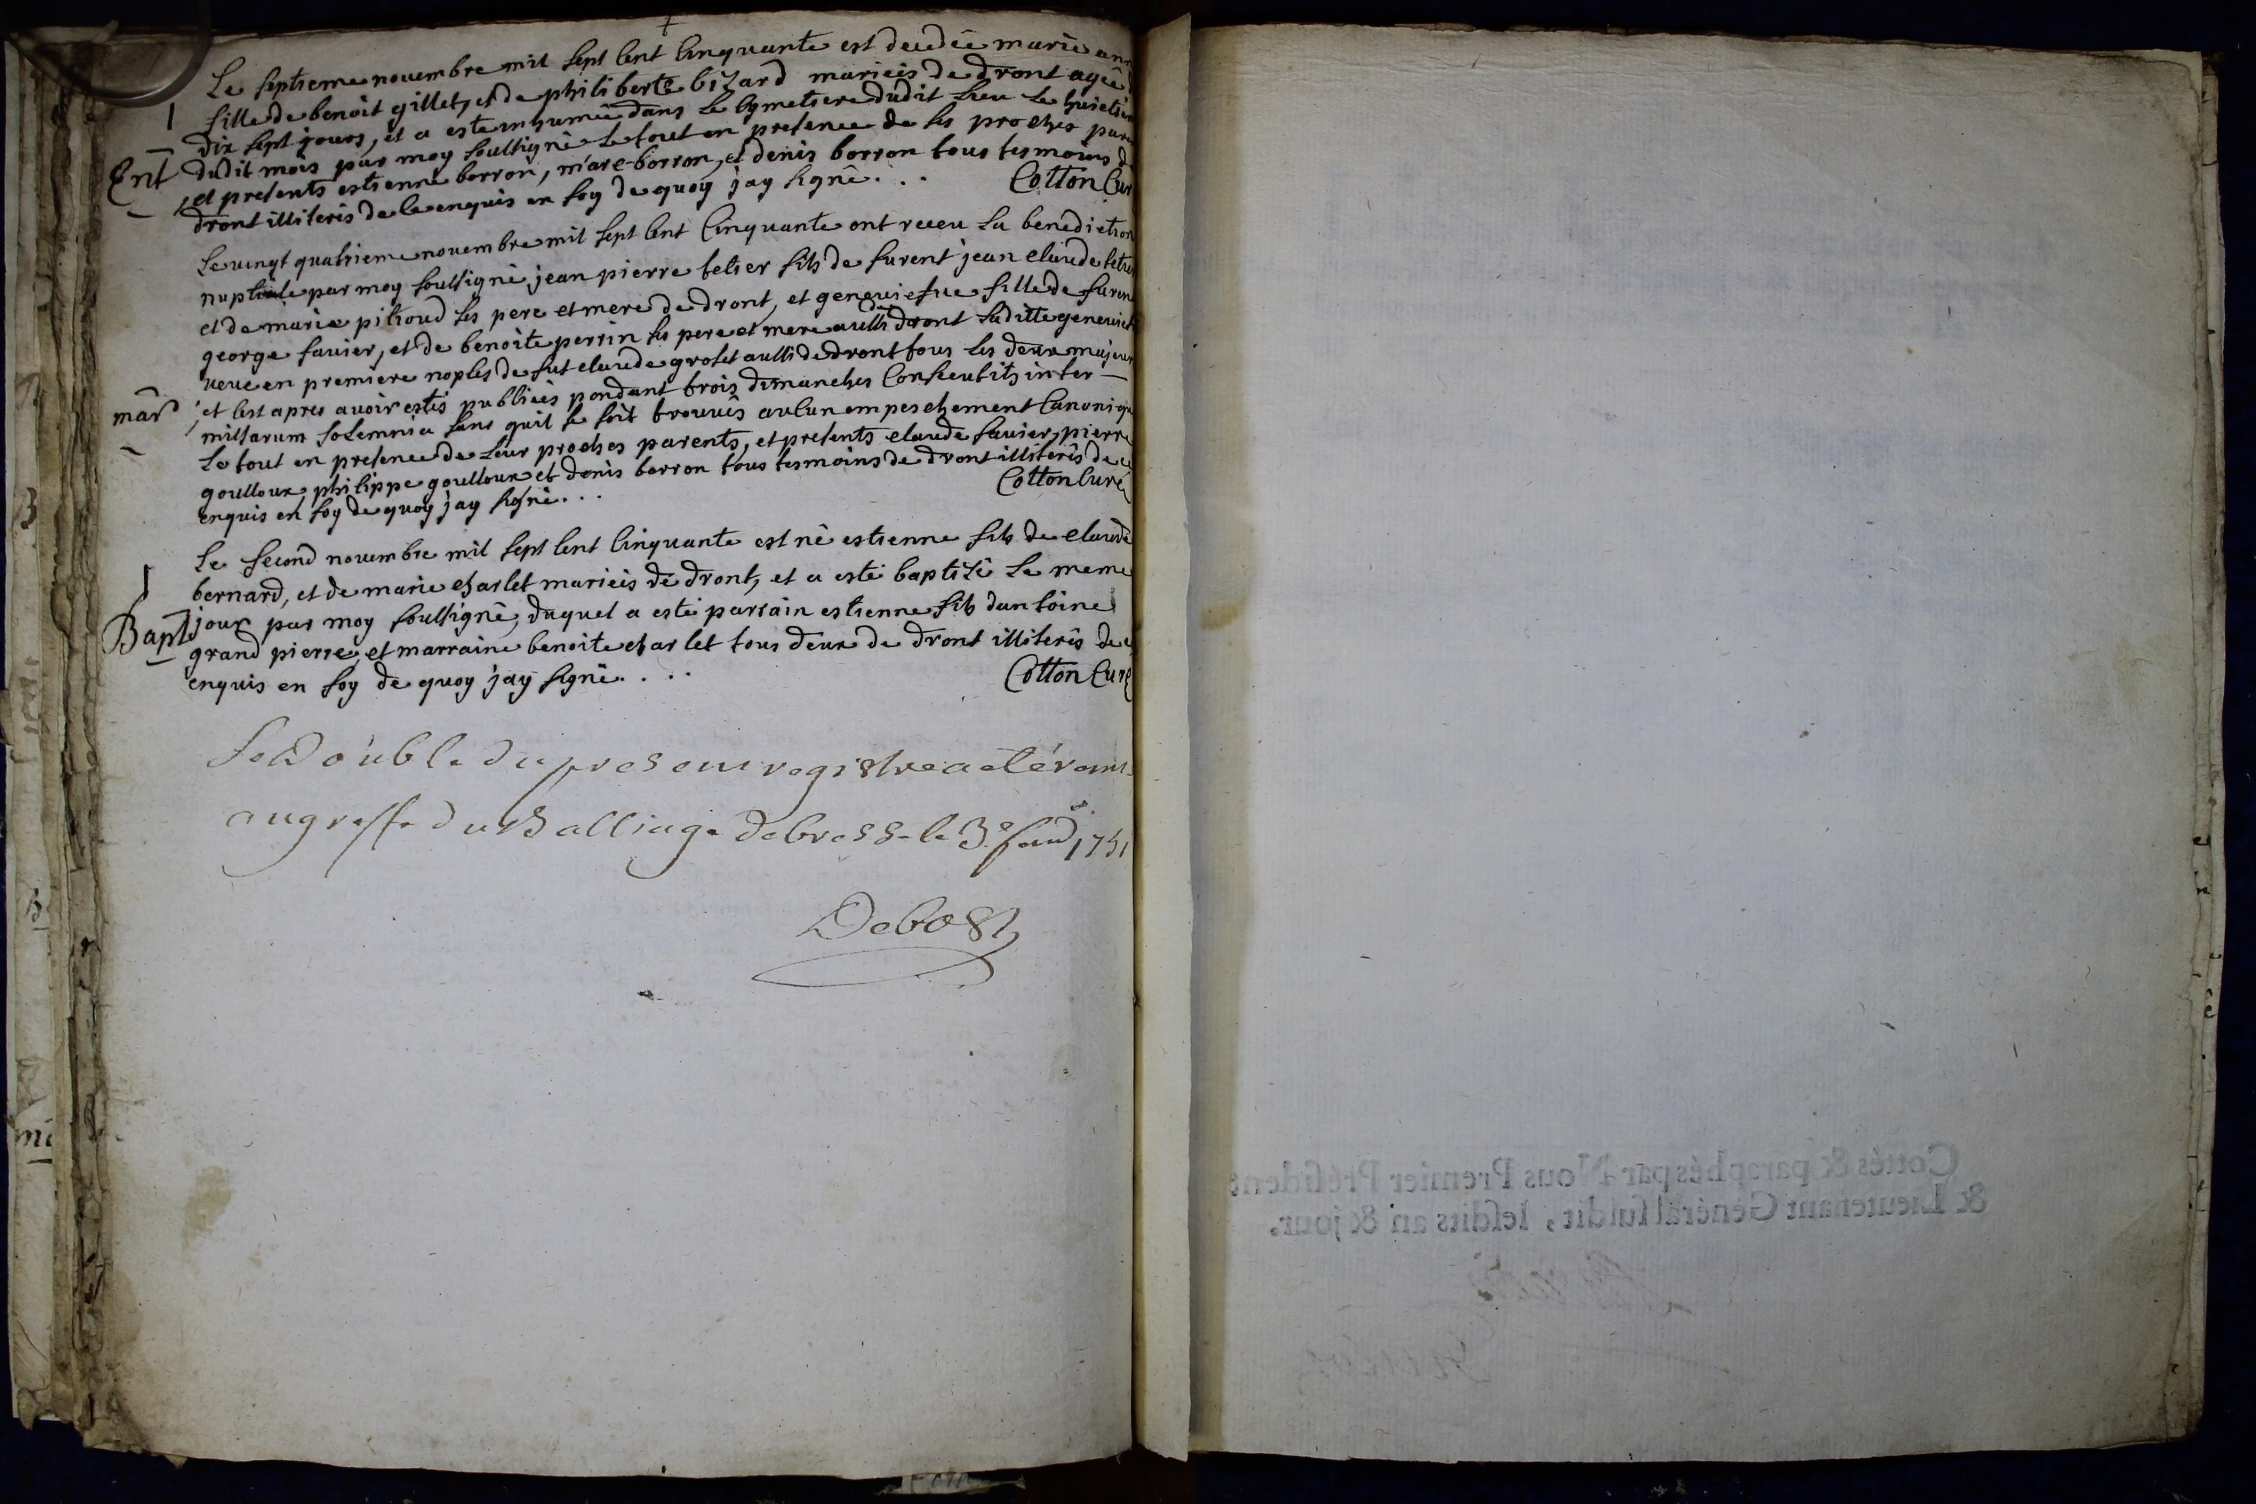 Le septieme novembre mil sept cent cinquante est decedée marie ann
fille de benoit gillet, et de philiberte bizard mariéis de dront agée
dix sept jours, et a esté inhumée dans le cymetiere dudit lieu le huictie
dudit mois par moy soussigné le tout en presence de ses proches par
Ent
et presents estienne borron, marc borron, et denis borron tous tesmoins d
dront illiterés de ce enquis en foy de quoy jay signé . . .
Cotton Cur
Le vingt quatrieme novembre mil sept cent Cinquante ont receu la benediction
nuptiale par moy soussigné jean pierre tetier fils de furent jean claude tetie
et de marie pitioud ses pere et mere de dront, et geneviefue fille de furen
george favier, et de benoite perrin ses pere et mere aussi de dront laditte genevief
veuve en premiere noples de fut claude grolet aussi de dront tous les deux majeur
mar
et cest apres avoir estés publiéés pendant trois dimanches Consecutifs inter
missarum solemnia sans quil se soit trouvés aulcun empeschement Canoniqu
le tout en presence de leur proches parents, et presents claude favier, pierre
goulloux, philippe goulloux et denis borron tous tesmoins de dront illiterés de ce
enquis en foy de quoy jay signé . . .
Cotton Curé
Le second novembre mil sept cent cinquante est né estienne fils de claude
bernard, et de marie charlet mariéis de dront, et a esté baptisé le meme
Bapt
jour par moy soussigné, duquel a esté parrain estienne fils dantoine
grand pierre, et marraine benoite charlet tous deux de dront illiterés de c
enquis en foy de quoy jay signé . . . .
Cotton Curé
Le Double du present registre a eté remi
au greffe du Balliage de bresse le 3e 1751
Debost
Cottés & paraphés par Nous Premier Présidens
& Lieutenant Général susdit, lesdits an & jour.